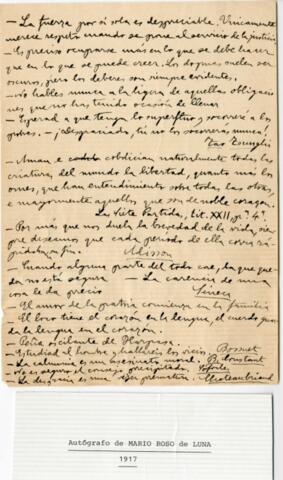 - La fuerza por si sola es despreciable. Unicamente
merece respeto cuando se pone al servicio de la justicia
- Es preciso ocuparse más en lo que se debe hacer
que en lo que se puede creer. Los dogmas suelen ser
oscuros, pero los deberes son siempre evidentes.
- No hables nunca a la ligera de aquellas obligacio
nes que no has tenido ocasión de llenar
- Esperad a que tenga lo superfluo y socorreré a los
pobres. - ¡desgraciado, tú no los socorrerás nunca!
- Aman e codician naturalmente todas las
criaturas del mundo la libertad, quanto más los
omes, que han entendimiento sobre todas las otras,
e mayormente aquellos que son de noble corazon.
La Siete Partida, tit. XXII,
- Por más que nos duela la brevedad de la vida, siem
pre deseamos que cada periodo de ella corra rá
pido a su fin. Adisson
- Cuando alguna parte del todo cae, la que que
da no está segura - La carencia de una
cosa le da precio Séneca
- El amor de la patria comienza en la familia
- El loco tiene el corazón en la lengua, el cuerdo guar
da la lengua en el corazón.
- Peña oscilante de
- Estudiad al hombre, y hallaréis los vicios. Bossuet
- La calumnia es un asesinato moral. B. Constant
- No es seguro el consejo precipitado. Sofocles
- La desgracia es una vejez prematura. Chateaubriand
Autógrafo de MARIO ROSO de LUNA
1917